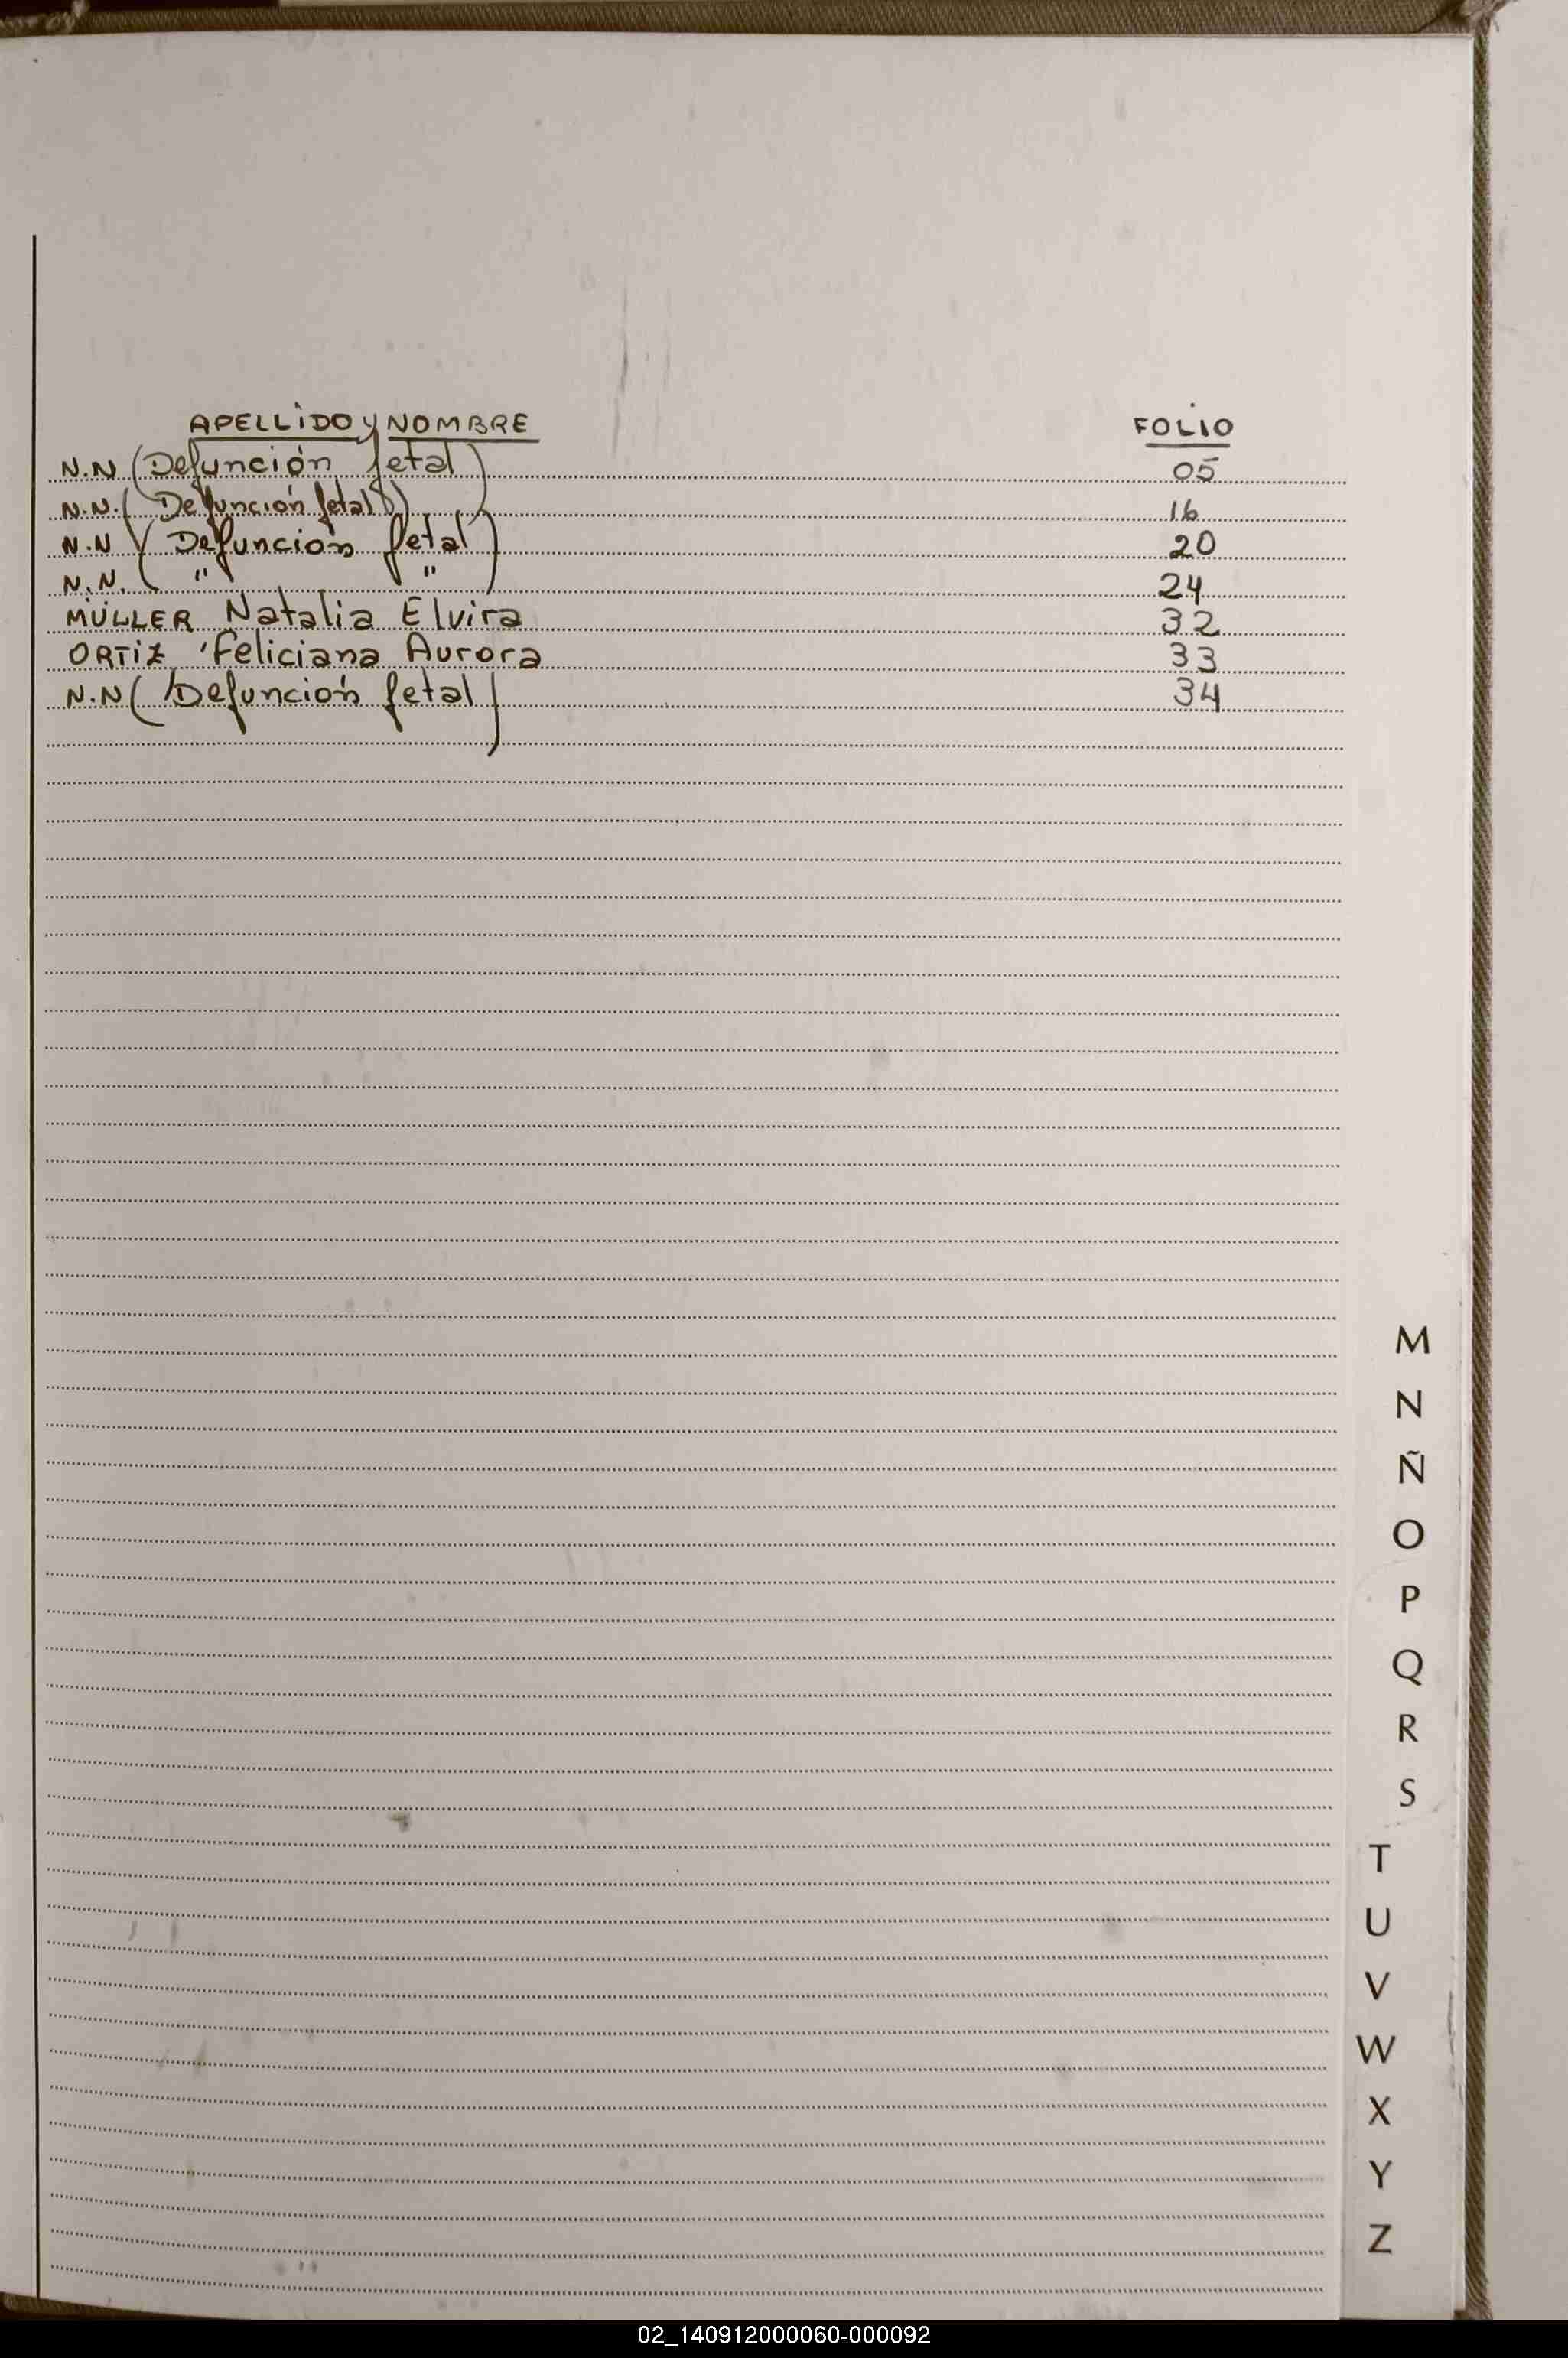 APELLIDO y NOMBRE FOLIO
N.N (Defunción fetal) 05
N.N. (Defunción fetal) 16
N.N (Defunción fetal) 20
N.N. ( " " ) 24
MÜLLER Natalia Elvira 32
ORTIZ, Feliciana Aurora 33
N.N (Defunción fetal) 34
M
N
Ñ
O
P
Q
R
S
T
U
V
W
X
Y
Z
02_140912000060-000092